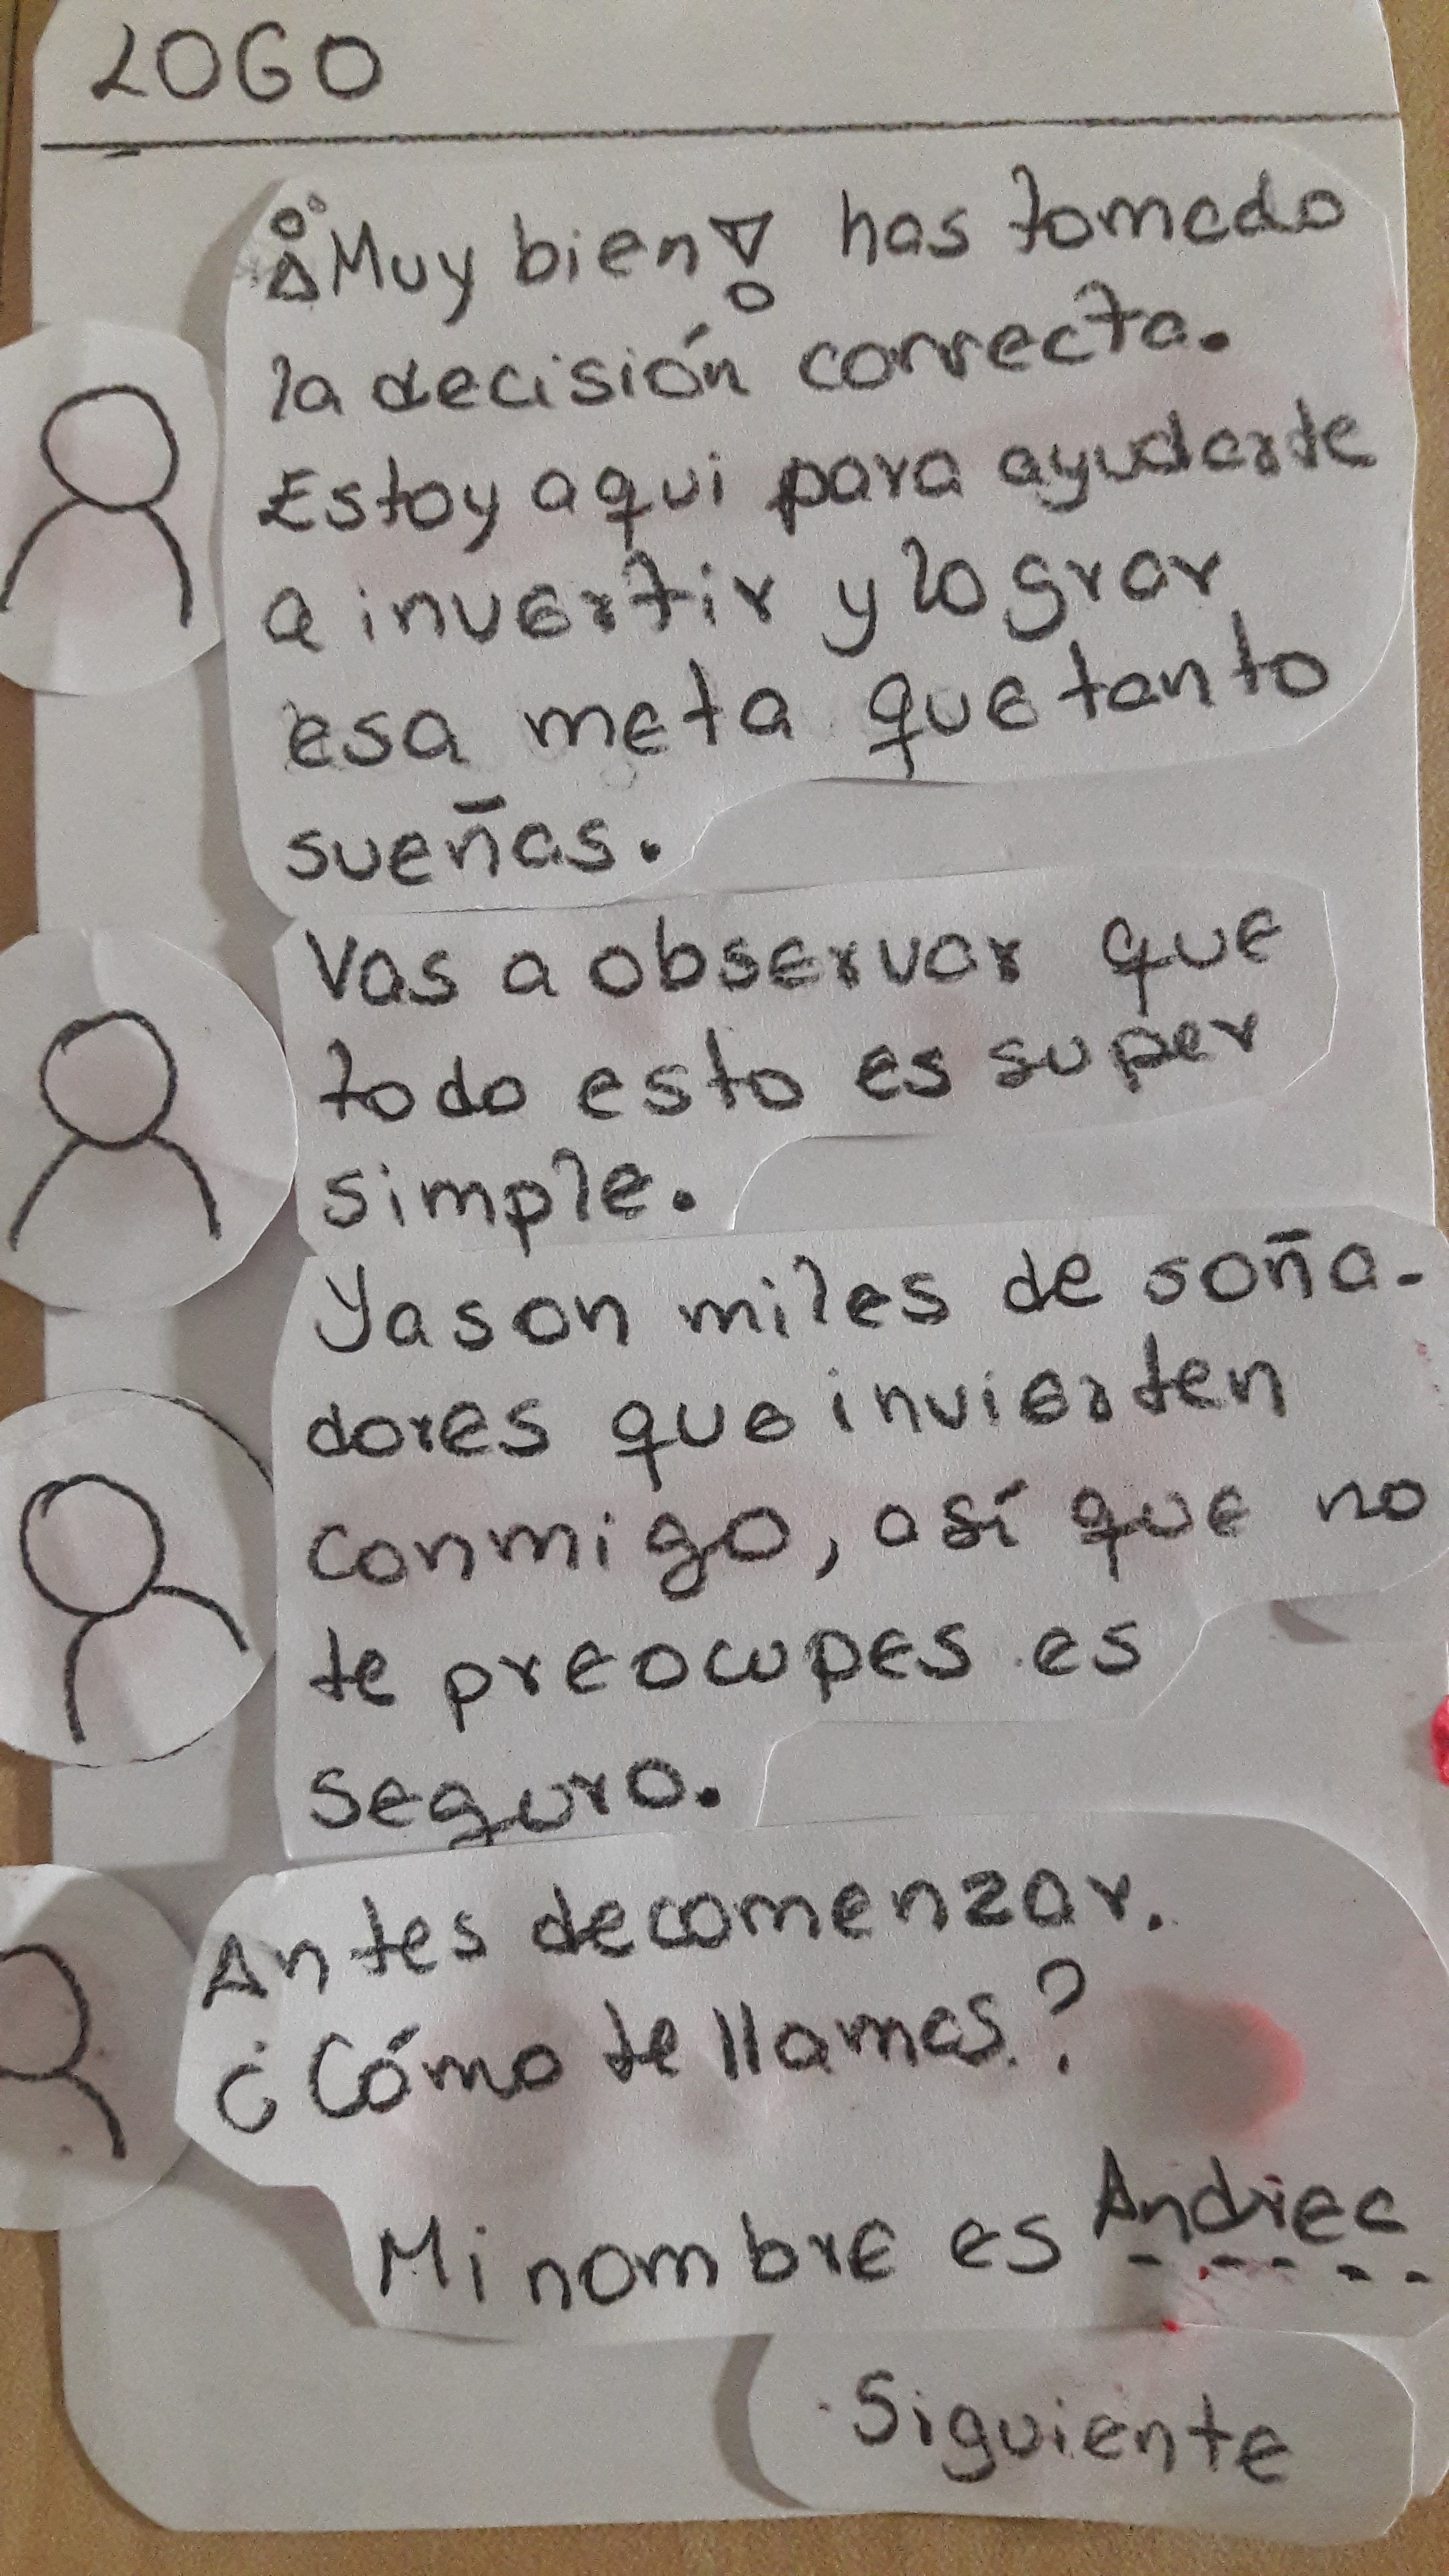 LOGO
¡Muy bien! has tomado
la decisión correcta.
Estoy aqui para ayudarte
a invertir y lograr
esa meta que tanto
sueñas.
Vas a observar que
todo esto es super
simple.
Ya son miles de soña-
dores que invierten
conmigo, así que no
te preocupes es
seguro.
Antes de comenzar.
¿Cómo te llamas?
Mi nombre es Andrea
Siguiente